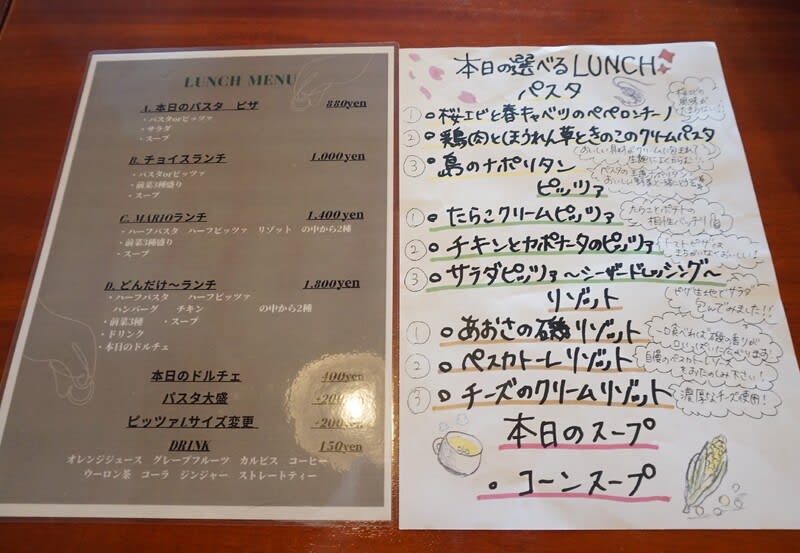 LUNCH MENU
A. 本日のパスタ ピザ 880yen
・パスタorピッツァ
・サラダ
・スープ
B. チョイスランチ 1,000yen
・パスタorピッツァ
・前菜3種盛り
・スープ
C. MARIOランチ 1,400yen
・ハーフパスタ ハーフピッツァ リゾット の中から2種
・前菜3種盛り
・スープ
D. どんだけ〜ランチ 1,800yen
・ハーフパスタ ハーフピッツァ
ハンバーグ チキン の中から2種
・前菜3種 ・スープ
・ドリンク
・本日のドルチェ
本日のドルチェ 400yen
パスタ大盛 +200yen
ピッツァLサイズ変更 +200yen
DRINK 150yen
オレンジジュース グレープフルーツ カルピス コーヒー
ウーロン茶 コーラ ジンジャー ストレートティー
本日の選べるLUNCH
パスタ
① 桜エビと春キャベツのペペロンチーノ
桜エビの風味がたまらない!!
② 鶏肉とほうれん草ときのこのクリームパスタ
おいしい具材がクリームに包まれて
③ 島のナポリタン
パスタの王道ナポリタン!
ピッツァ
① たらこクリームピッツァ
たらことポテトの
相性バッチリ
② チキンとカポナータのピッツァ
トマトピザは
まちがいなくおいしい!
③ サラダピッツァ〜シーザードレッシング〜
ピザ生地でサラダ
包んでみました!!
リゾット
① あおさの磯リゾット
一口食べれば磯の香りが
口いっぱいに広がります!
② ペスカトーレリゾット
自慢のペスカトーレ
をおたのしみ下さい!
③ チーズのクリームリゾット
濃厚なチーズ使用!
本日のスープ
コーンスープ